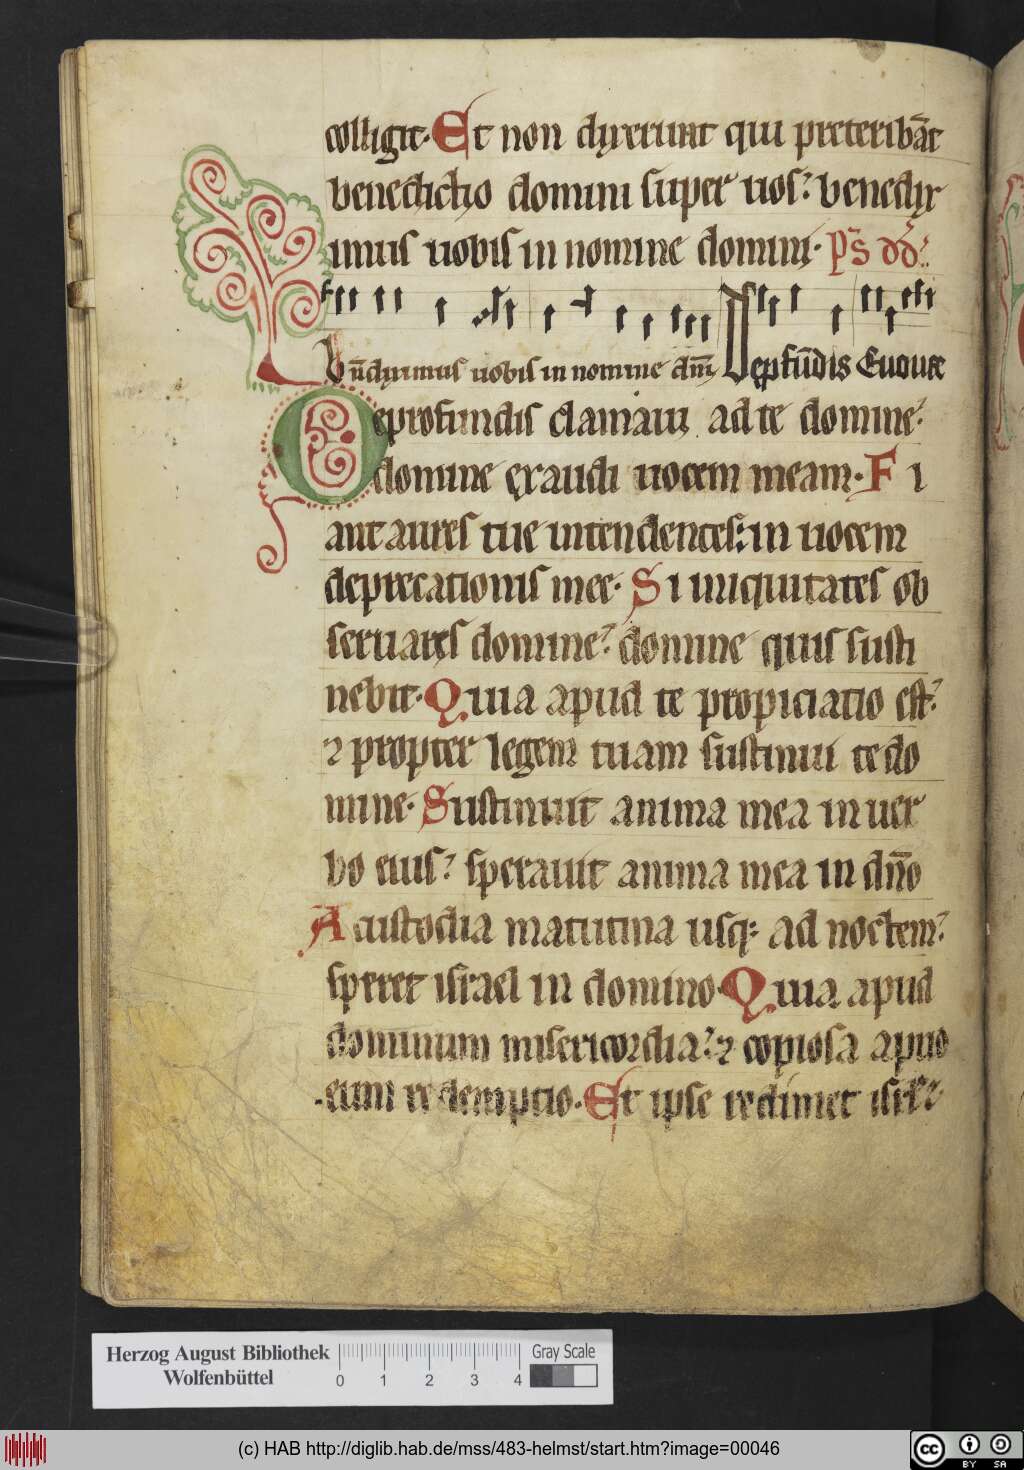 colligit. Et non dyxerunt qui preteribāt
benedictio domini super uos: benedix
imus uobis in nomine domini. ps dd
Bn̄diximus uobis in nomine dn̄i Depfūdis Euouae
Deprofundis clamaui ad te domine:
domine exaudi uocem meam. Fi
ant aures tue intendentes: in uocem
deprecationis mee. Si iniquitates ob
seruaueris domine: domine quis susti
nebit. Quia apud te propiciatio est:
⁊ propter legem tuam sustinui te do
mine. Sustinuit anima mea in uer
bo eius: sperauit anima mea in dn̄o
A custodia matutina usq; ad noctem:
speret israel in domino. Quia apud
dominum misericordia: ⁊ copiosa apud
eum redemptio. Et ipse redimet isrl:
Herzog August Bibliothek
Wolfenbüttel
0 1 2 3 4
Gray Scale
(c) HAB http://diglib.hab.de/mss/483-helmst/start.htm?image=00046
cc BY SA